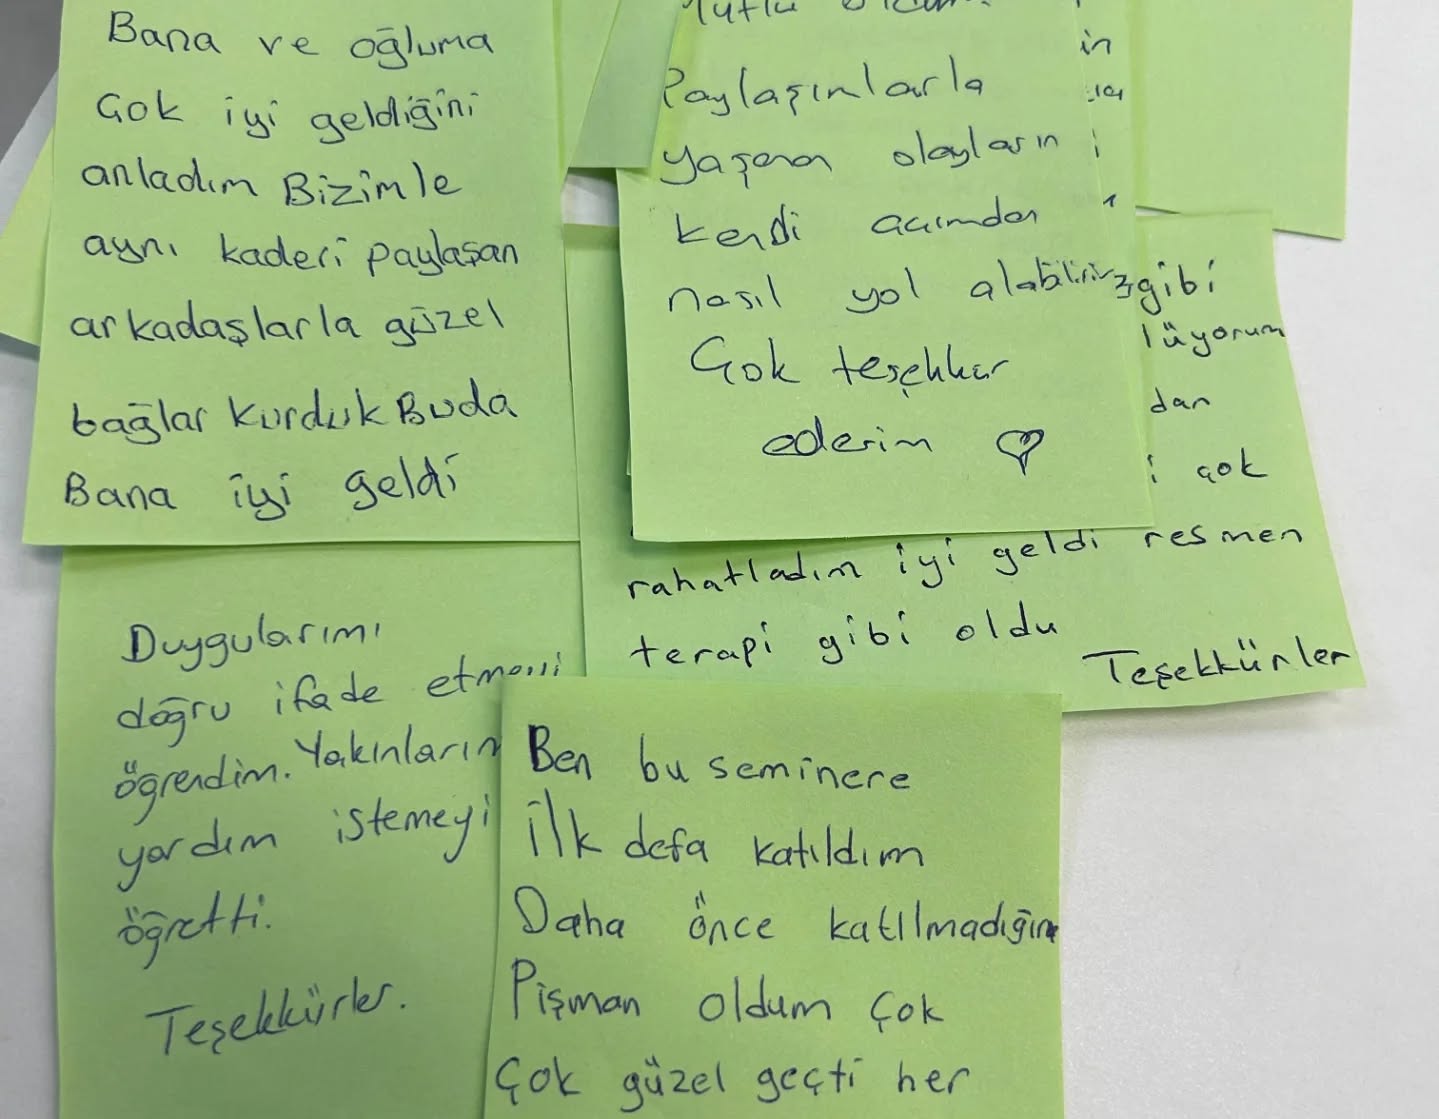 Bana ve oğluma
Çok iyi geldiğini
anladım Bizimle
aynı kaderi paylaşan
arkadaşlarla güzel
bağlar kurduk Buda
Bana iyi geldi
Paylaşımlarla
yaşanan olayların
kendi açımdan
nasıl yol alabiliriz
Çok teşekkür
ederim
gibi
lüyorum
dan
çok
rahatladım iyi geldi resmen
terapi gibi oldu
Teşekkürler
Duygularımı
doğru ifade etmeyi
öğrendim. Yakınların
yardım istemeyi
öğretti.
Teşekkürler.
Ben bu seminere
ilk defa katıldım
Daha önce katılmadığım
Pişman oldum Çok
Çok güzel geçti her